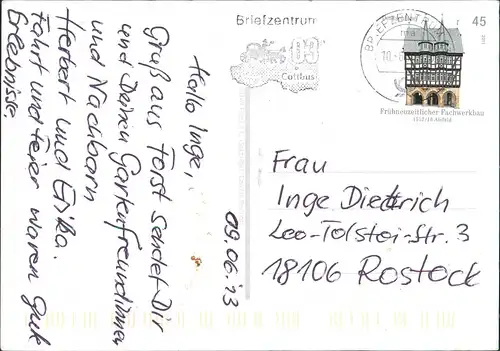 Briefzentrum
03
Cottbus
BRIEFZENTRUM
45
Frühneuzeitlicher Fachwerkbau
1512/16 Alsfeld
09.06.13
Hallo Inge,
Gruß aus Forst sendet Dir
und Deinen Gartenfreundinnen
und Nachbarn
Herbert und Erika.
Fahrt und Feier waren gute
Erlebnisse
Frau
Inge Diedrich
Leo-Tolstoi-Str. 3
18106 Rostock